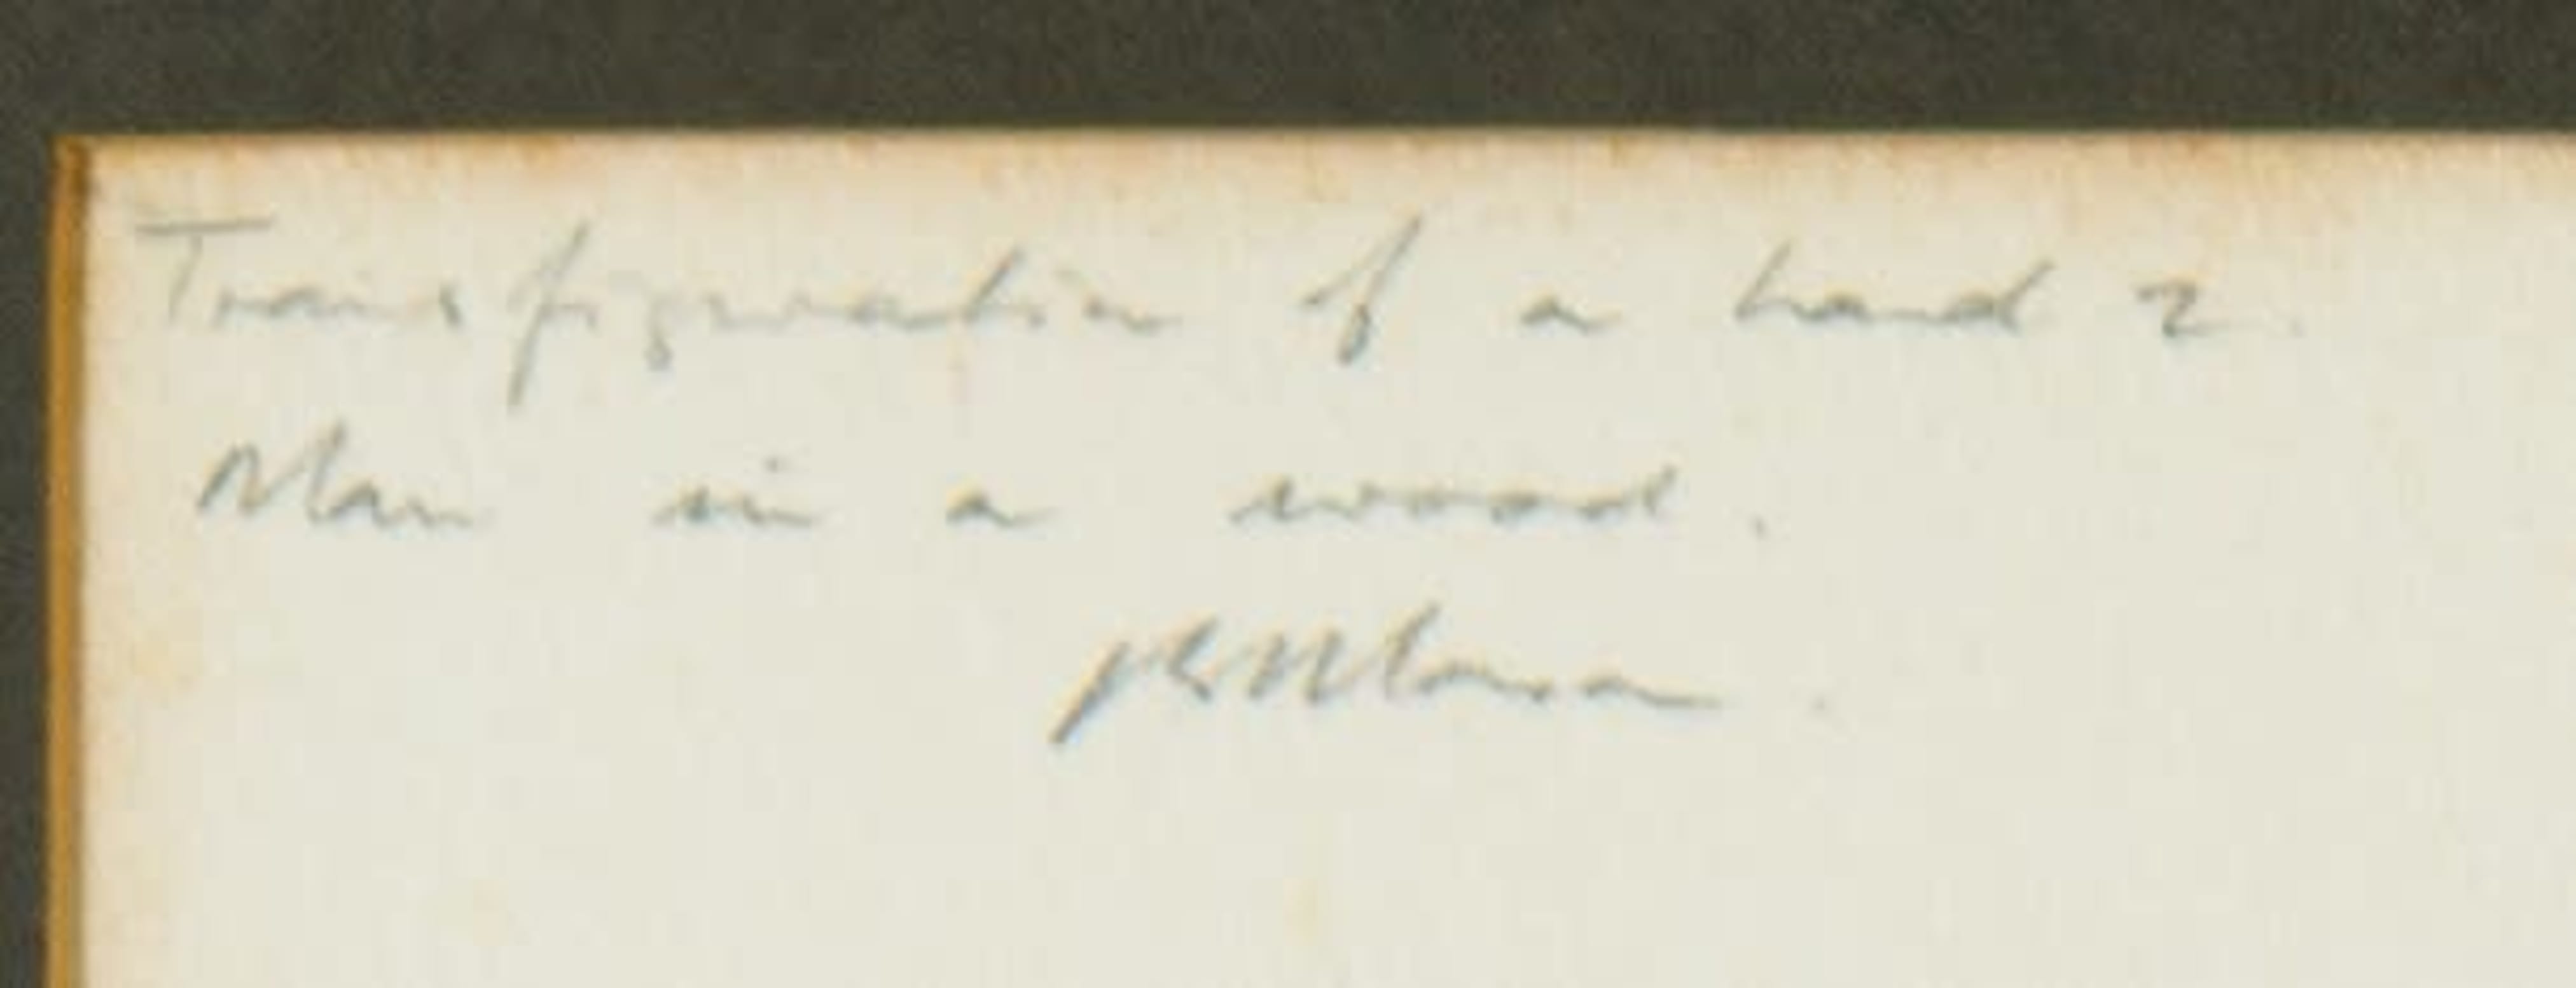 Transfiguration of a hand 2.
Man in a wood.